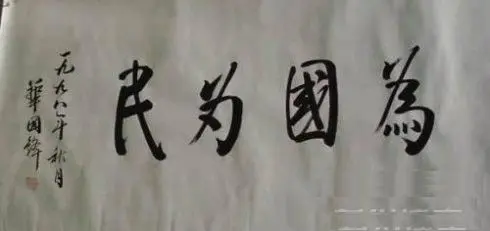 為國为民
一九九八年秋月
華国鋒